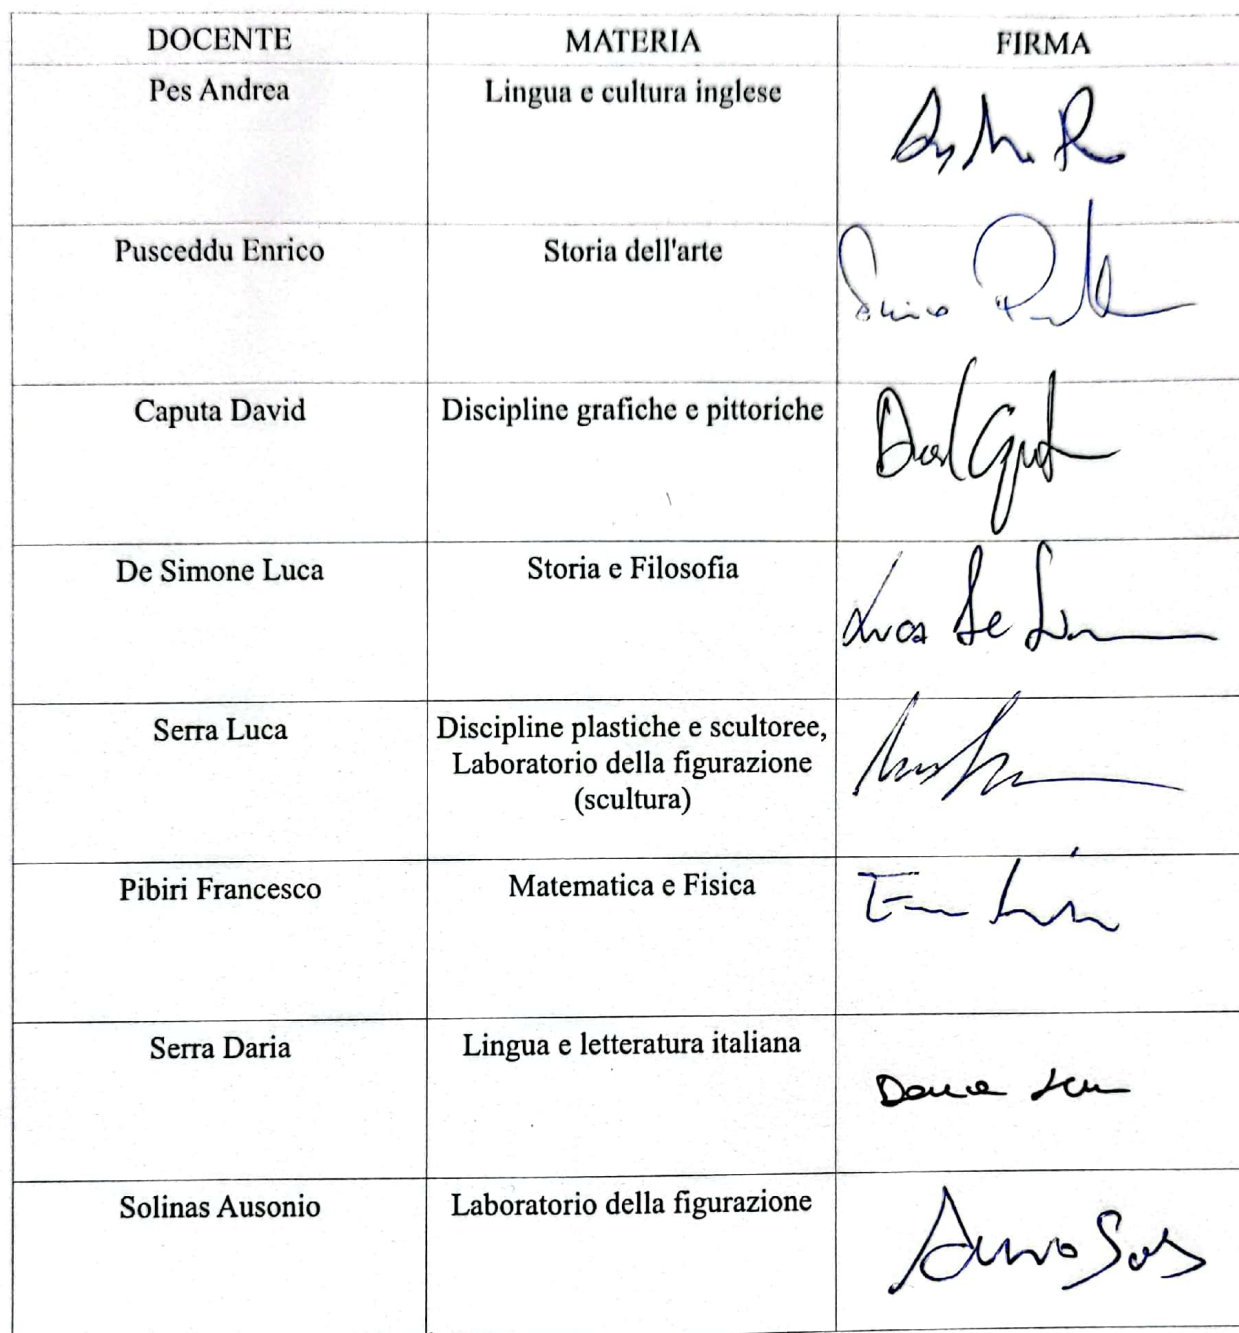 DOCENTE MATERIA FIRMA
Pes Andrea Lingua e cultura inglese
Pusceddu Enrico Storia dell'arte
Caputa David Discipline grafiche e pittoriche
De Simone Luca Storia e Filosofia
Luca De
Serra Luca Discipline plastiche e scultoree,
Laboratorio della figurazione
(scultura)
Pibiri Francesco Matematica e Fisica
Serra Daria Lingua e letteratura italiana
Solinas Ausonio Laboratorio della figurazione